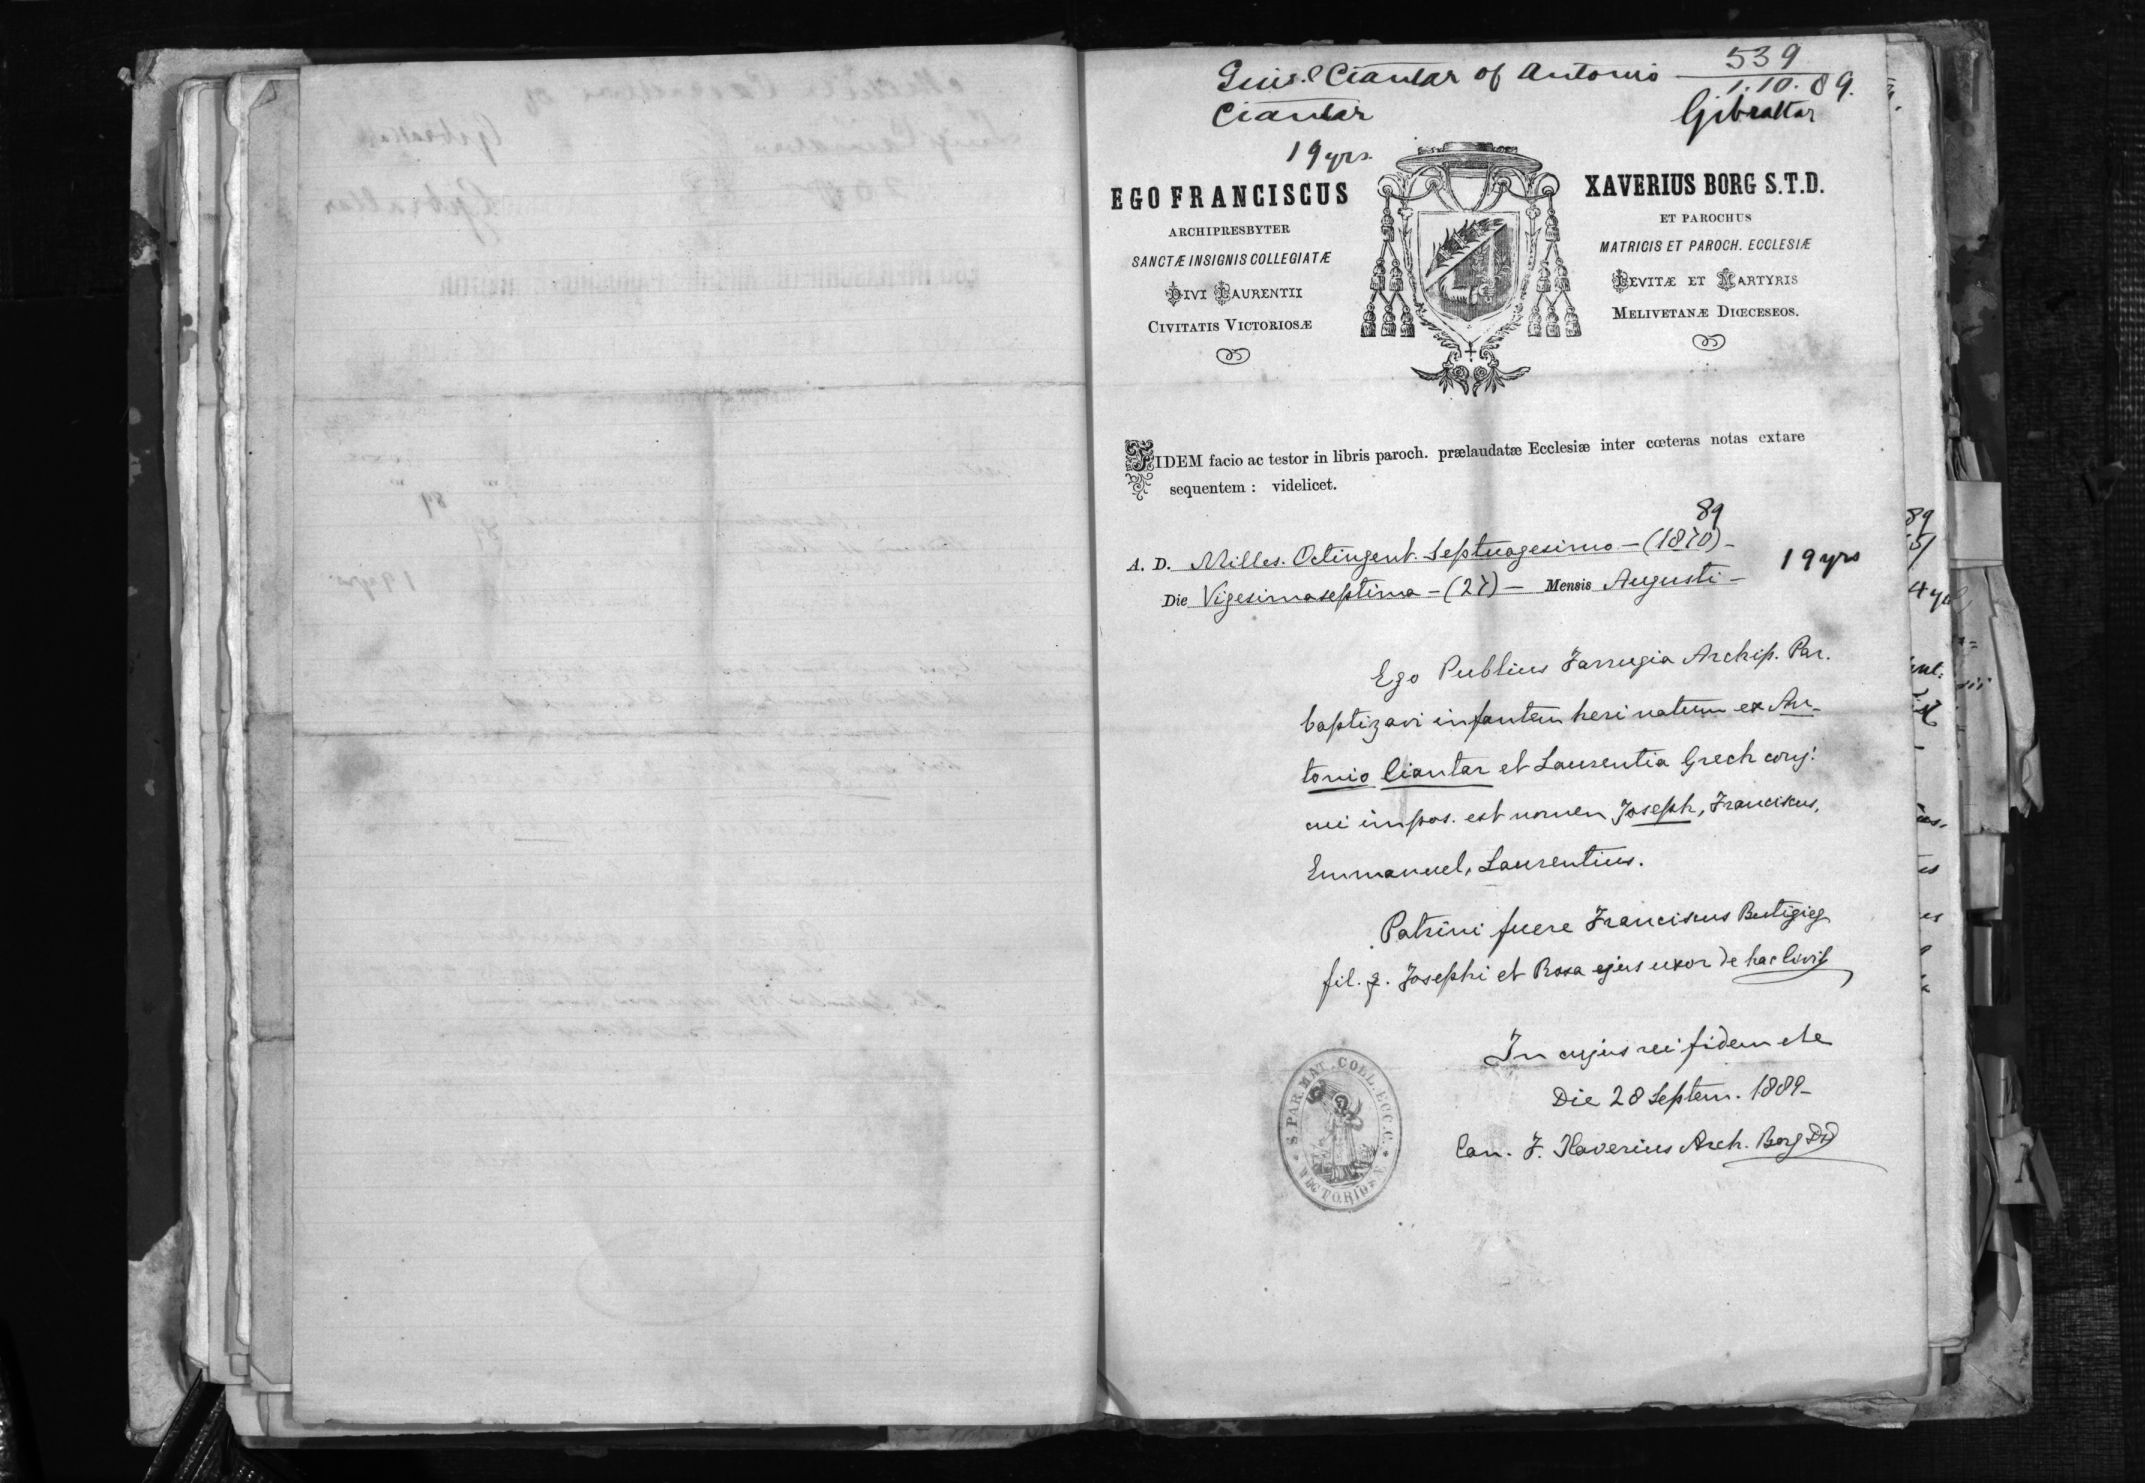 Guis.e Ciantar of Antonio
Ciantar
539
1.10.89.
Gibraltar
19 yrs.
EGO FRANCISCUS
ARCHIPRESBYTER
SANCTÆ INSIGNIS COLLEGIATÆ
DIVI LAURENTII
CIVITATIS VICTORIOSÆ
XAVERIUS BORG S.T.D.
ET PAROCHUS
MATRICIS ET PAROCH. ECCLESIÆ
LEVITÆ ET MARTYRIS
MELIVETANÆ DIŒCESEOS.
FIDEM facio ac testor in libris paroch. prælaudatæ Ecclesiæ inter cœteras notas extare
sequentem : videlicet.
89
A. D. Milles. Octingent. Septuagesimo — (1870) —
19 yrs
Die Vigesimaseptima — (27) — Mensis Augusti —
Ego Publius Farrugia Archip. Par.
baptizavi infantem heri natum ex An-
tonio Ciantar et Laurentia Grech conj:
cui impos. est nomen Joseph, Franciscus,
Emmanuel, Laurentius.
Patrini fuere Franciscus Buttigieg
fil. q. Josephi et Rosa ejus uxor de hac Civit
In cujus rei fidem etc
Die 28 Septem. 1889 —
Can. F. Xaverius Arch. Borg DD
S. PAR. MAT. COLL. ECC. C. VICTORIOSÆ
89
4 yrs